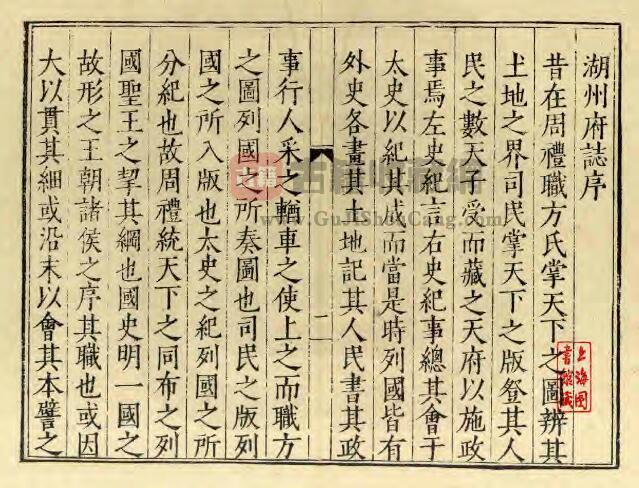 湖州府誌序
昔在周禮職方氏掌天下之圖辨其
土地之界司民掌天下之版登其人
民之數天子受而藏之天府以施政
事焉左史紀言右史紀事總其會于
太史以紀其成而當是時列國皆有
外史各畫其土地記其人民書其政
一
事行人采之輶車之使上之而職方
之圖列國之所奏圖也司民之版列
國之所入版也太史之紀列國之所
分紀也故周禮統天下之同布之列
國聖王之挈其綱也國史明一國之
故形之王朝諸侯之序其職也或因
大以貫其細或沿末以會其本譬之
上海圖
書館藏
古籍收藏網
www.GuJiShouCang.com